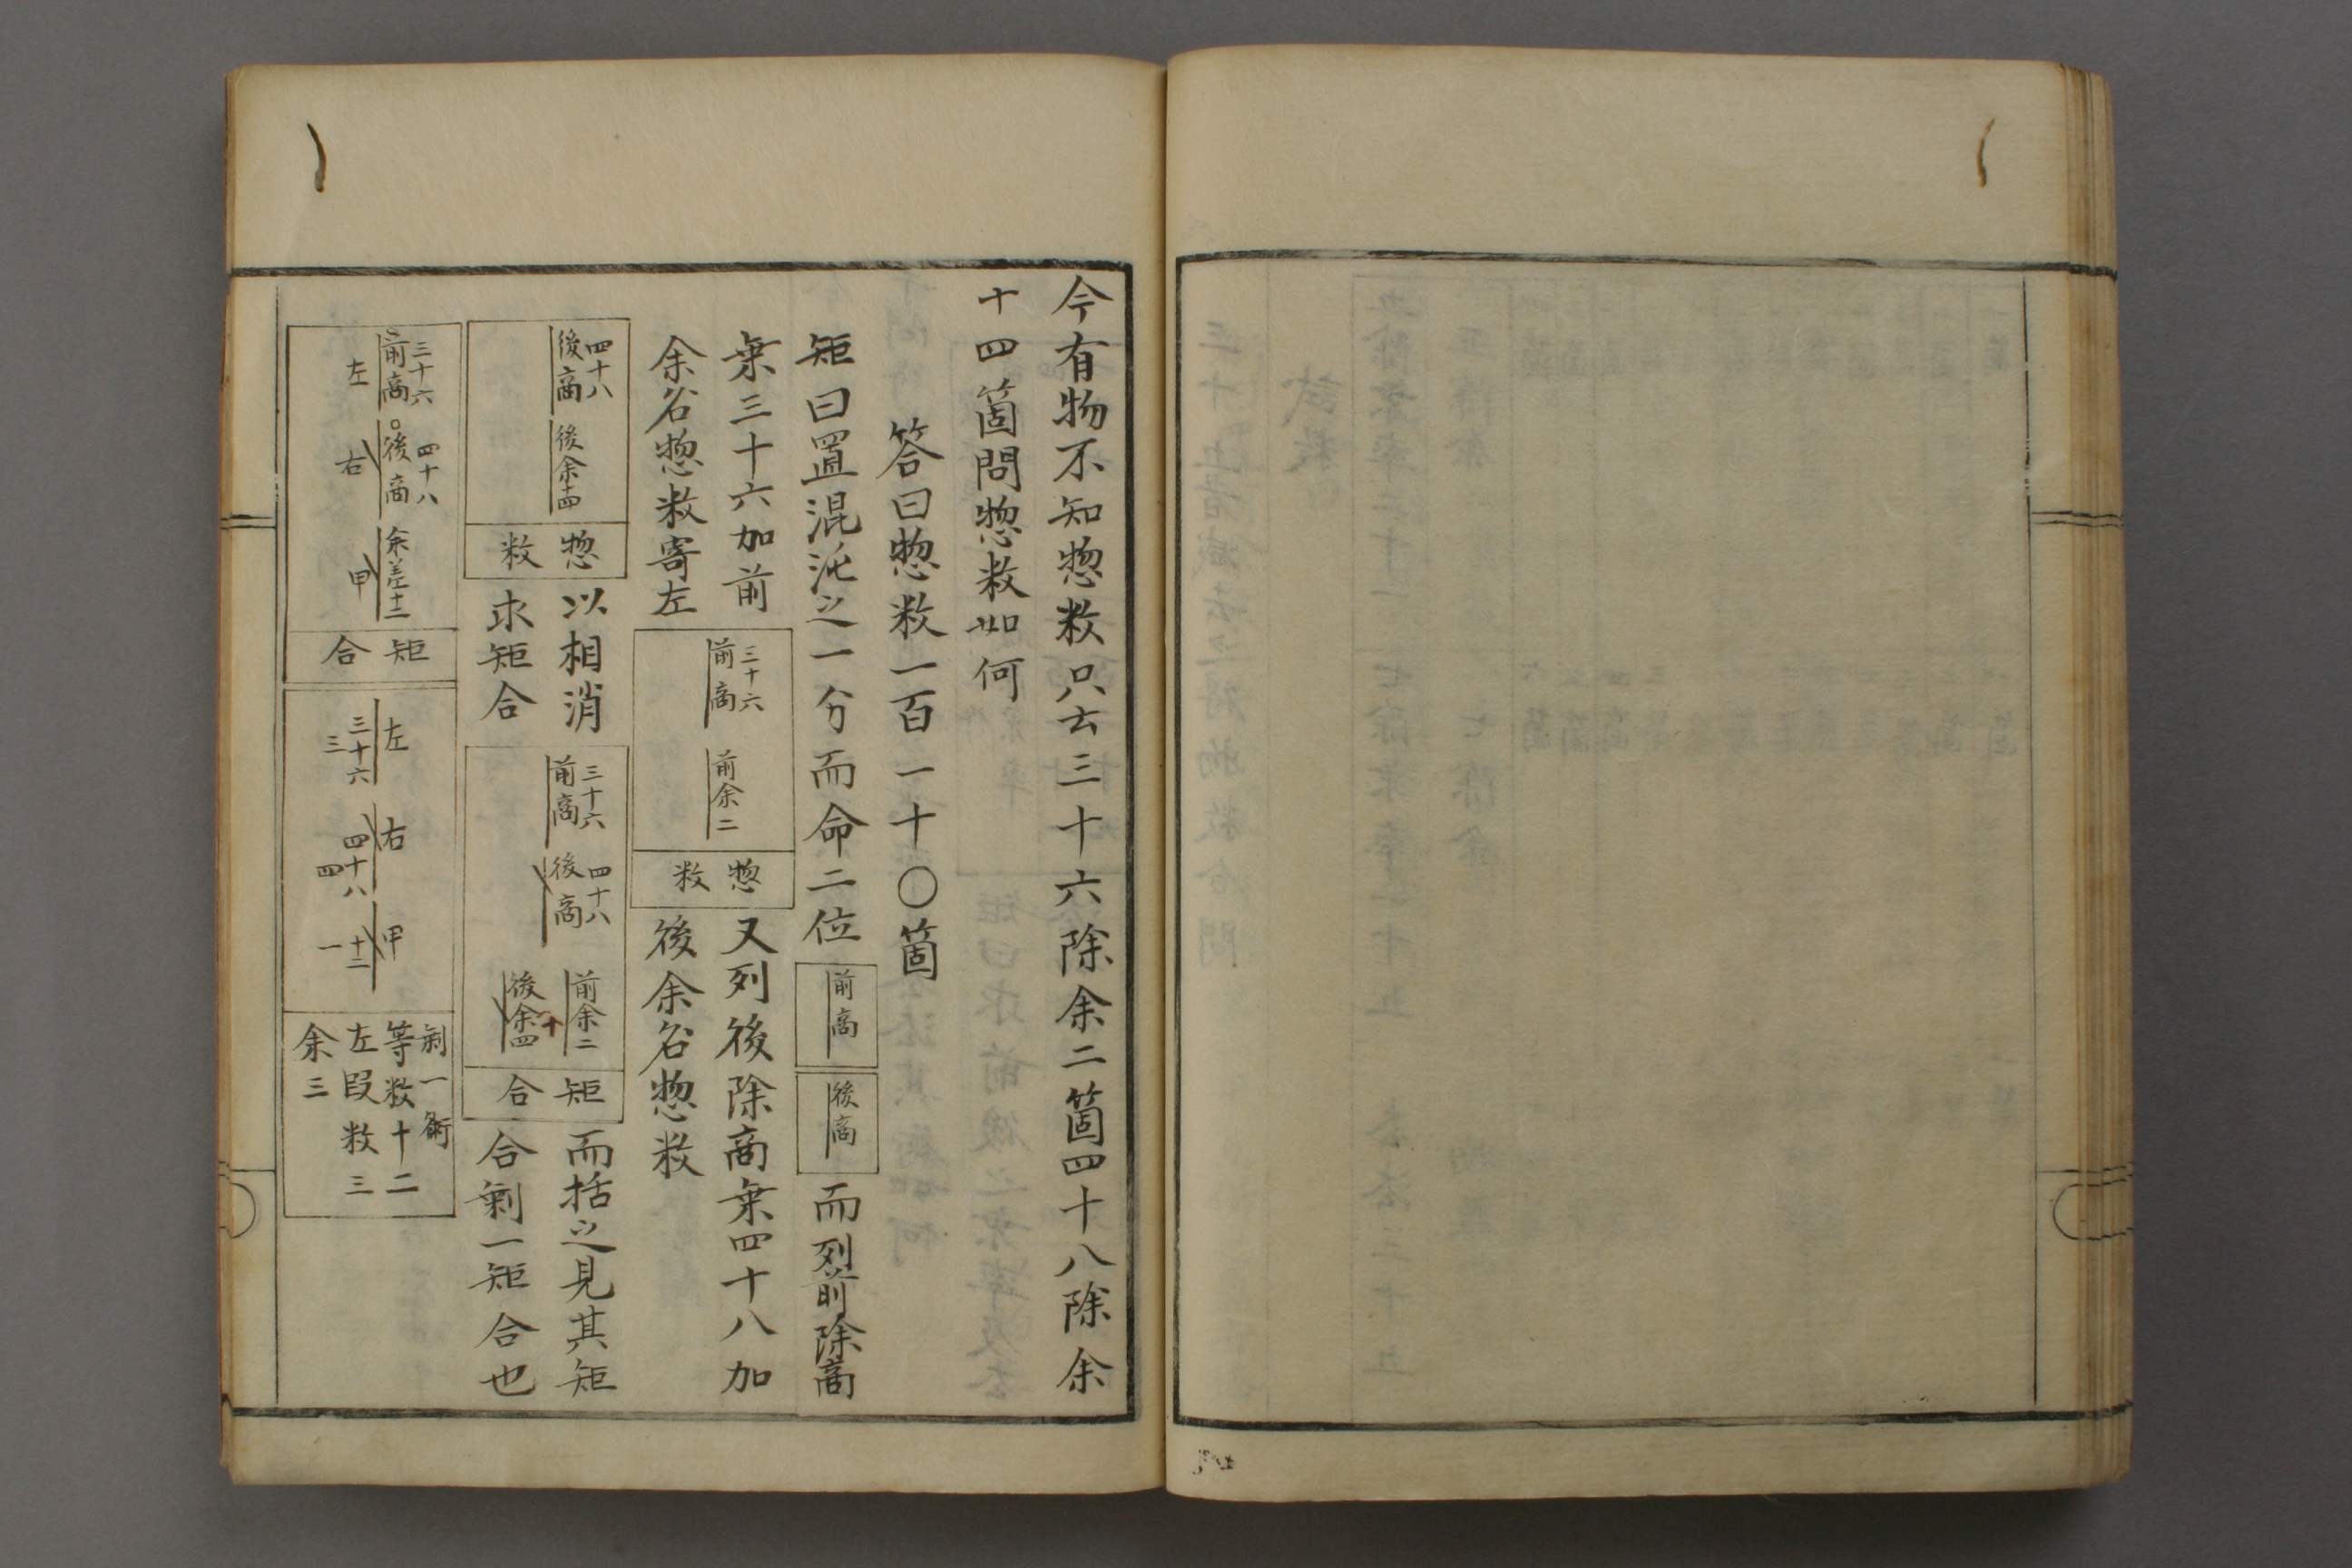 今有物不知惣数只云三十六除余二箇四十八除余
十四箇問惣数如何
答曰惣数一百一十〇箇
矩曰置混沌之一分而命二位
前商
後商
而列前除商
乗三十六加前
余名惣数寄左
三十六
前商
前余二
惣数
又列後除商乗四十八加
後余名惣数
四十八
後商
後余十四
惣数
以相消
求矩合
三十六
前商
四十八
後商
前余二
後余十四
矩合
而括之見其矩
合剰一矩合也
三十六
前商
四十八
後商
余差十二
左
右
甲
矩合
左
三十六
三
右
四十八
四
甲
十二
一
剰一術
等数十二
左段数三
余三